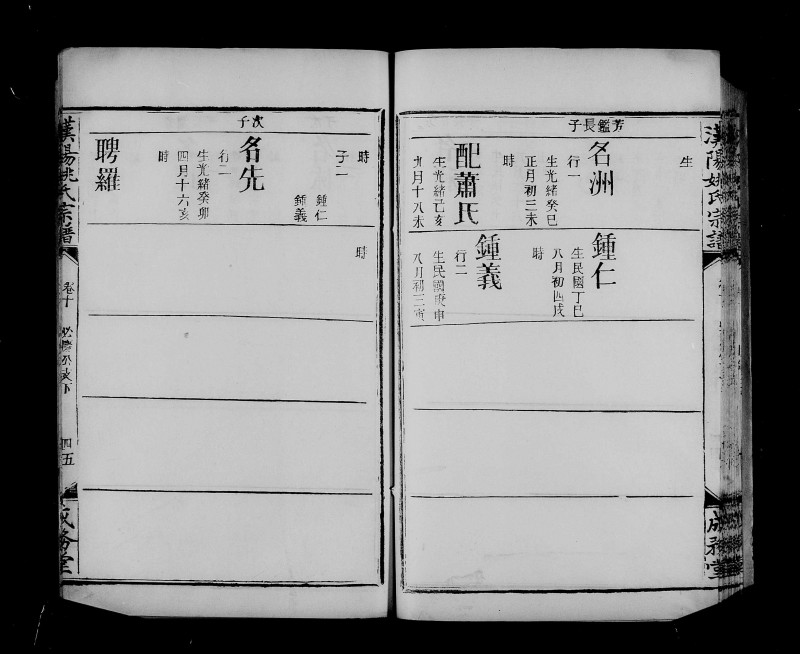 漢陽姚氏宗譜
成務堂
生
芳鑑長子
名洲
行一
生光緒癸巳
正月初三未
時
配蕭氏
生光緒己亥
九月十八未
鍾仁
生民國丁巳
八月初四戌
時
鍾義
行二
生民國庚申
八月初三寅
時
子二
鍾仁
鍾義
次子
名先
行二
生光緒癸卯
四月十六亥
時
聘羅
時
漢陽姚氏宗譜
卷十
四五
成務堂